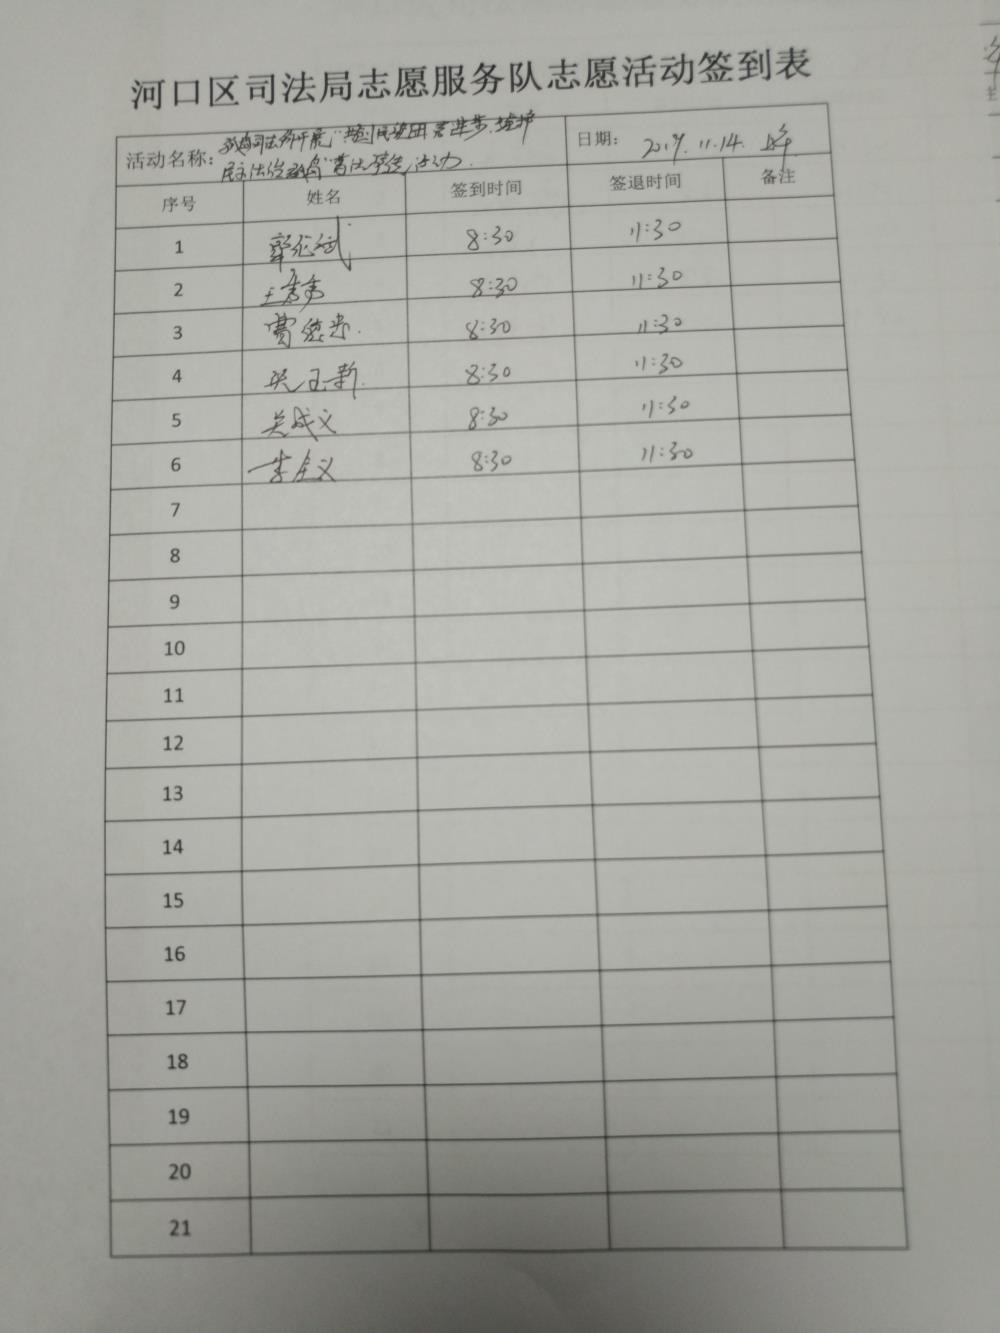 河口区司法局志愿服务队志愿活动签到表
活动名称： 孤岛司法所开展"增进民族团结进步,维护
民主法治孤岛"普法宣传活动.
日期： 2019.11.14. 上午
序号 姓名 签到时间 签退时间 备注
1 8:30 11:30
2 8:30 11:30
3 8:30 11:30
4 吴玉新. 8:30 11:30
5 关成义 8:30 11:30
6 李全义 8:30 11:30
7
8
9
10
11
12
13
14
15
16
17
18
19
20
21